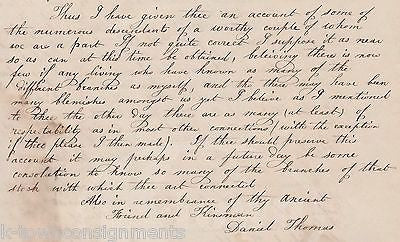 Thus I have given thee an account of some of
the numerous descendant of a worthy couple of whom
we are a part If not quite correct I suppose it as near
so as can at this time be obtained, believing there is now
few if any living who have known as many of the
different branches as myself, and tho there may have been
many blemishes amongst us yet I believe as I mentioned
to thee the other day there are as many (at least) of
respectability as in most other connections (with the exception
if thee please I then made). If thee should preserve this
account it may perhaps in a future day be some
consolation to know so many of the branches of that
stock with which thee art connected
Also in remembrance of thy Ancient
Friend and Kinsman
Daniel Thomas
k-townconsignments